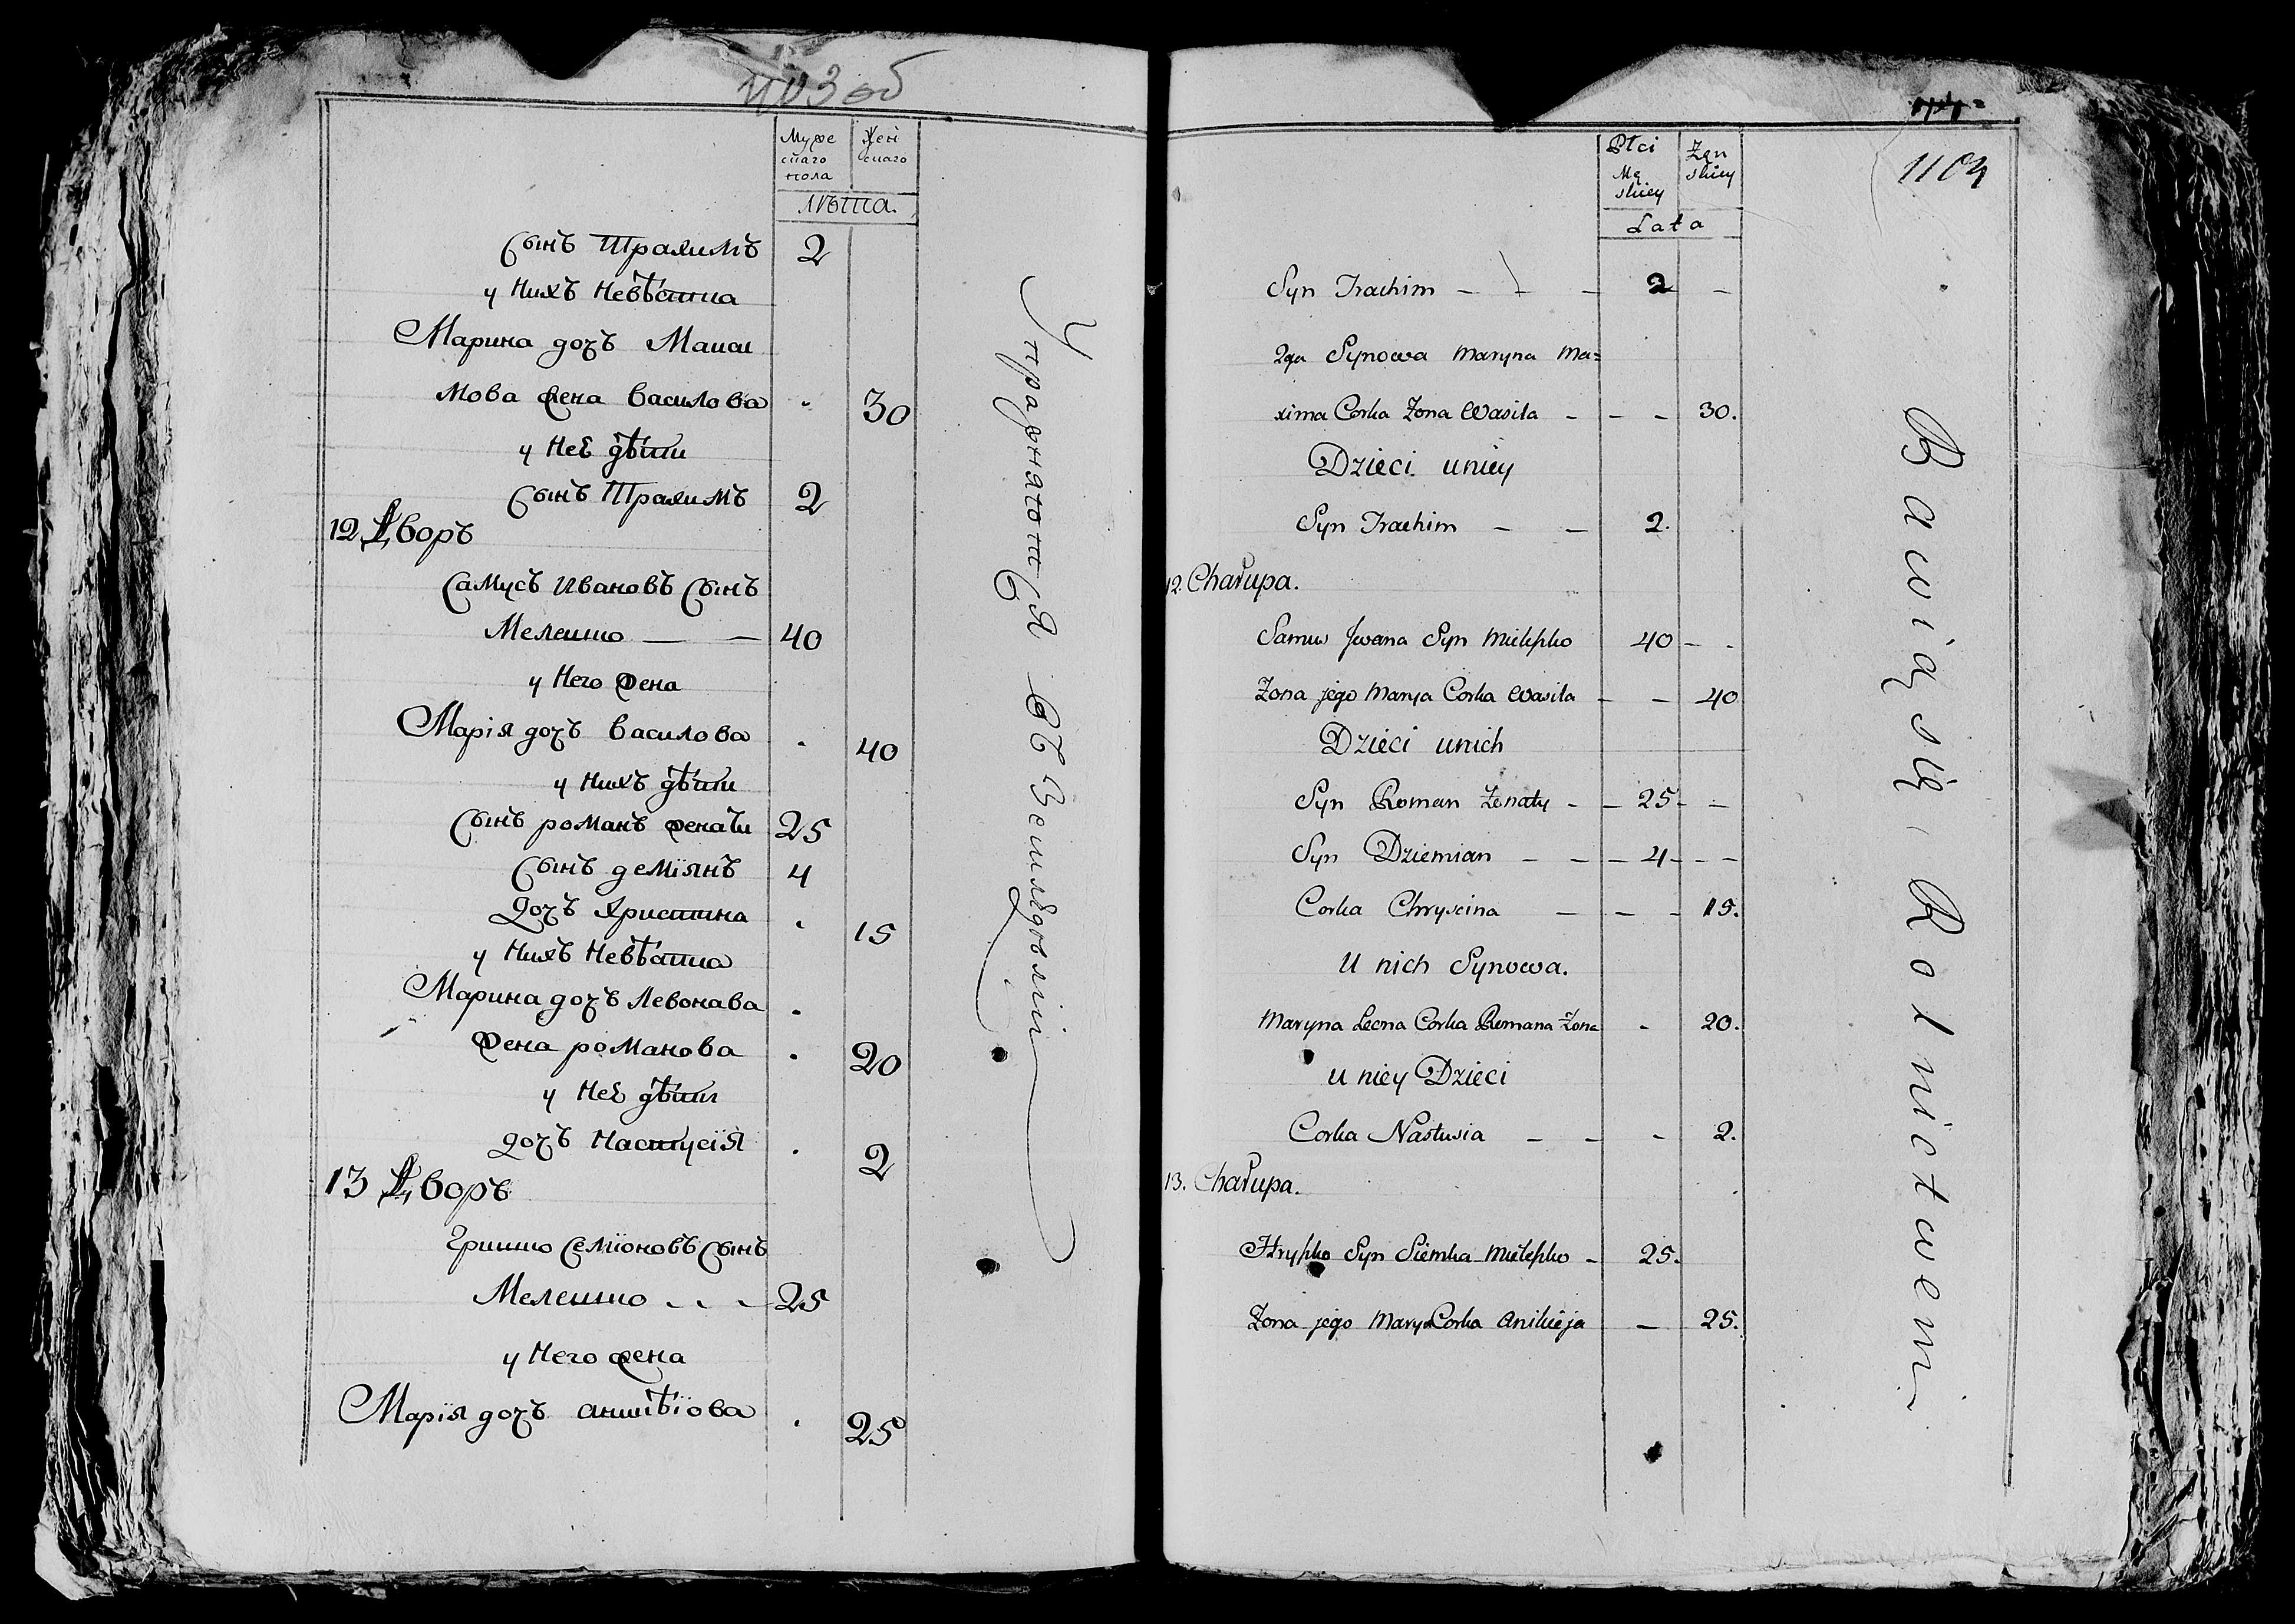 1103 об
Муже
скаго
пола
Жен
скаго
Лѣта.
Сынъ Трахимъ 2
у нихъ невѣстка
Марина дочь Макси
мова жена Василова 30
у неё дѣти
Сынъ Трахимъ 2
12 Дворъ
Самусь Ивановъ Сынъ
Мелешко — — 40
у него жена
Марія дочь Василова 40
у нихъ дѣти
Сынъ Романъ женатъ 25
Сынъ Деміянъ 4
Дочь Христина 15
у нихъ невѣстка
Марина дочь Левонава
жена Романова 20
у неё дѣти
дочь Настусія 2
13 Дворъ
Гришко Семіоновъ Сынъ
Мелешко - - - 25
у него жена
Марія дочь Аникѣіова 25
Упражнятотся въ Земледѣліи
1104
Płci
Mę
skiey
Żeń
skiey
Lata
Syn Trachim — — — 2 —
2ga Synowa Maryna Ma=
xima Corka Żona Wasila — — — 30.
Dzieci uniey
Syn Trachim — — 2.
12. Chałupa.
Samuś Jwana Syn Mieleszko 40 — -
Zona jego Marya Corka Wasila — — 40
Dzieci unich
Syn Roman Żonaty — — 25 — —
Syn Dziemian — — — 4 — — —
Corka Chryscina — — — 15.
U nich Synowa.
Maryna Leona Corka Romana Żona - 20.
U niey Dzieci
Corka Nastusia — — - 2.
13. Chałupa.
Hryszko Syn Siemka Mieleszko — 25.
Żona jego Marya Corka Anikieja — 25.
Bawią się Rolnictwem